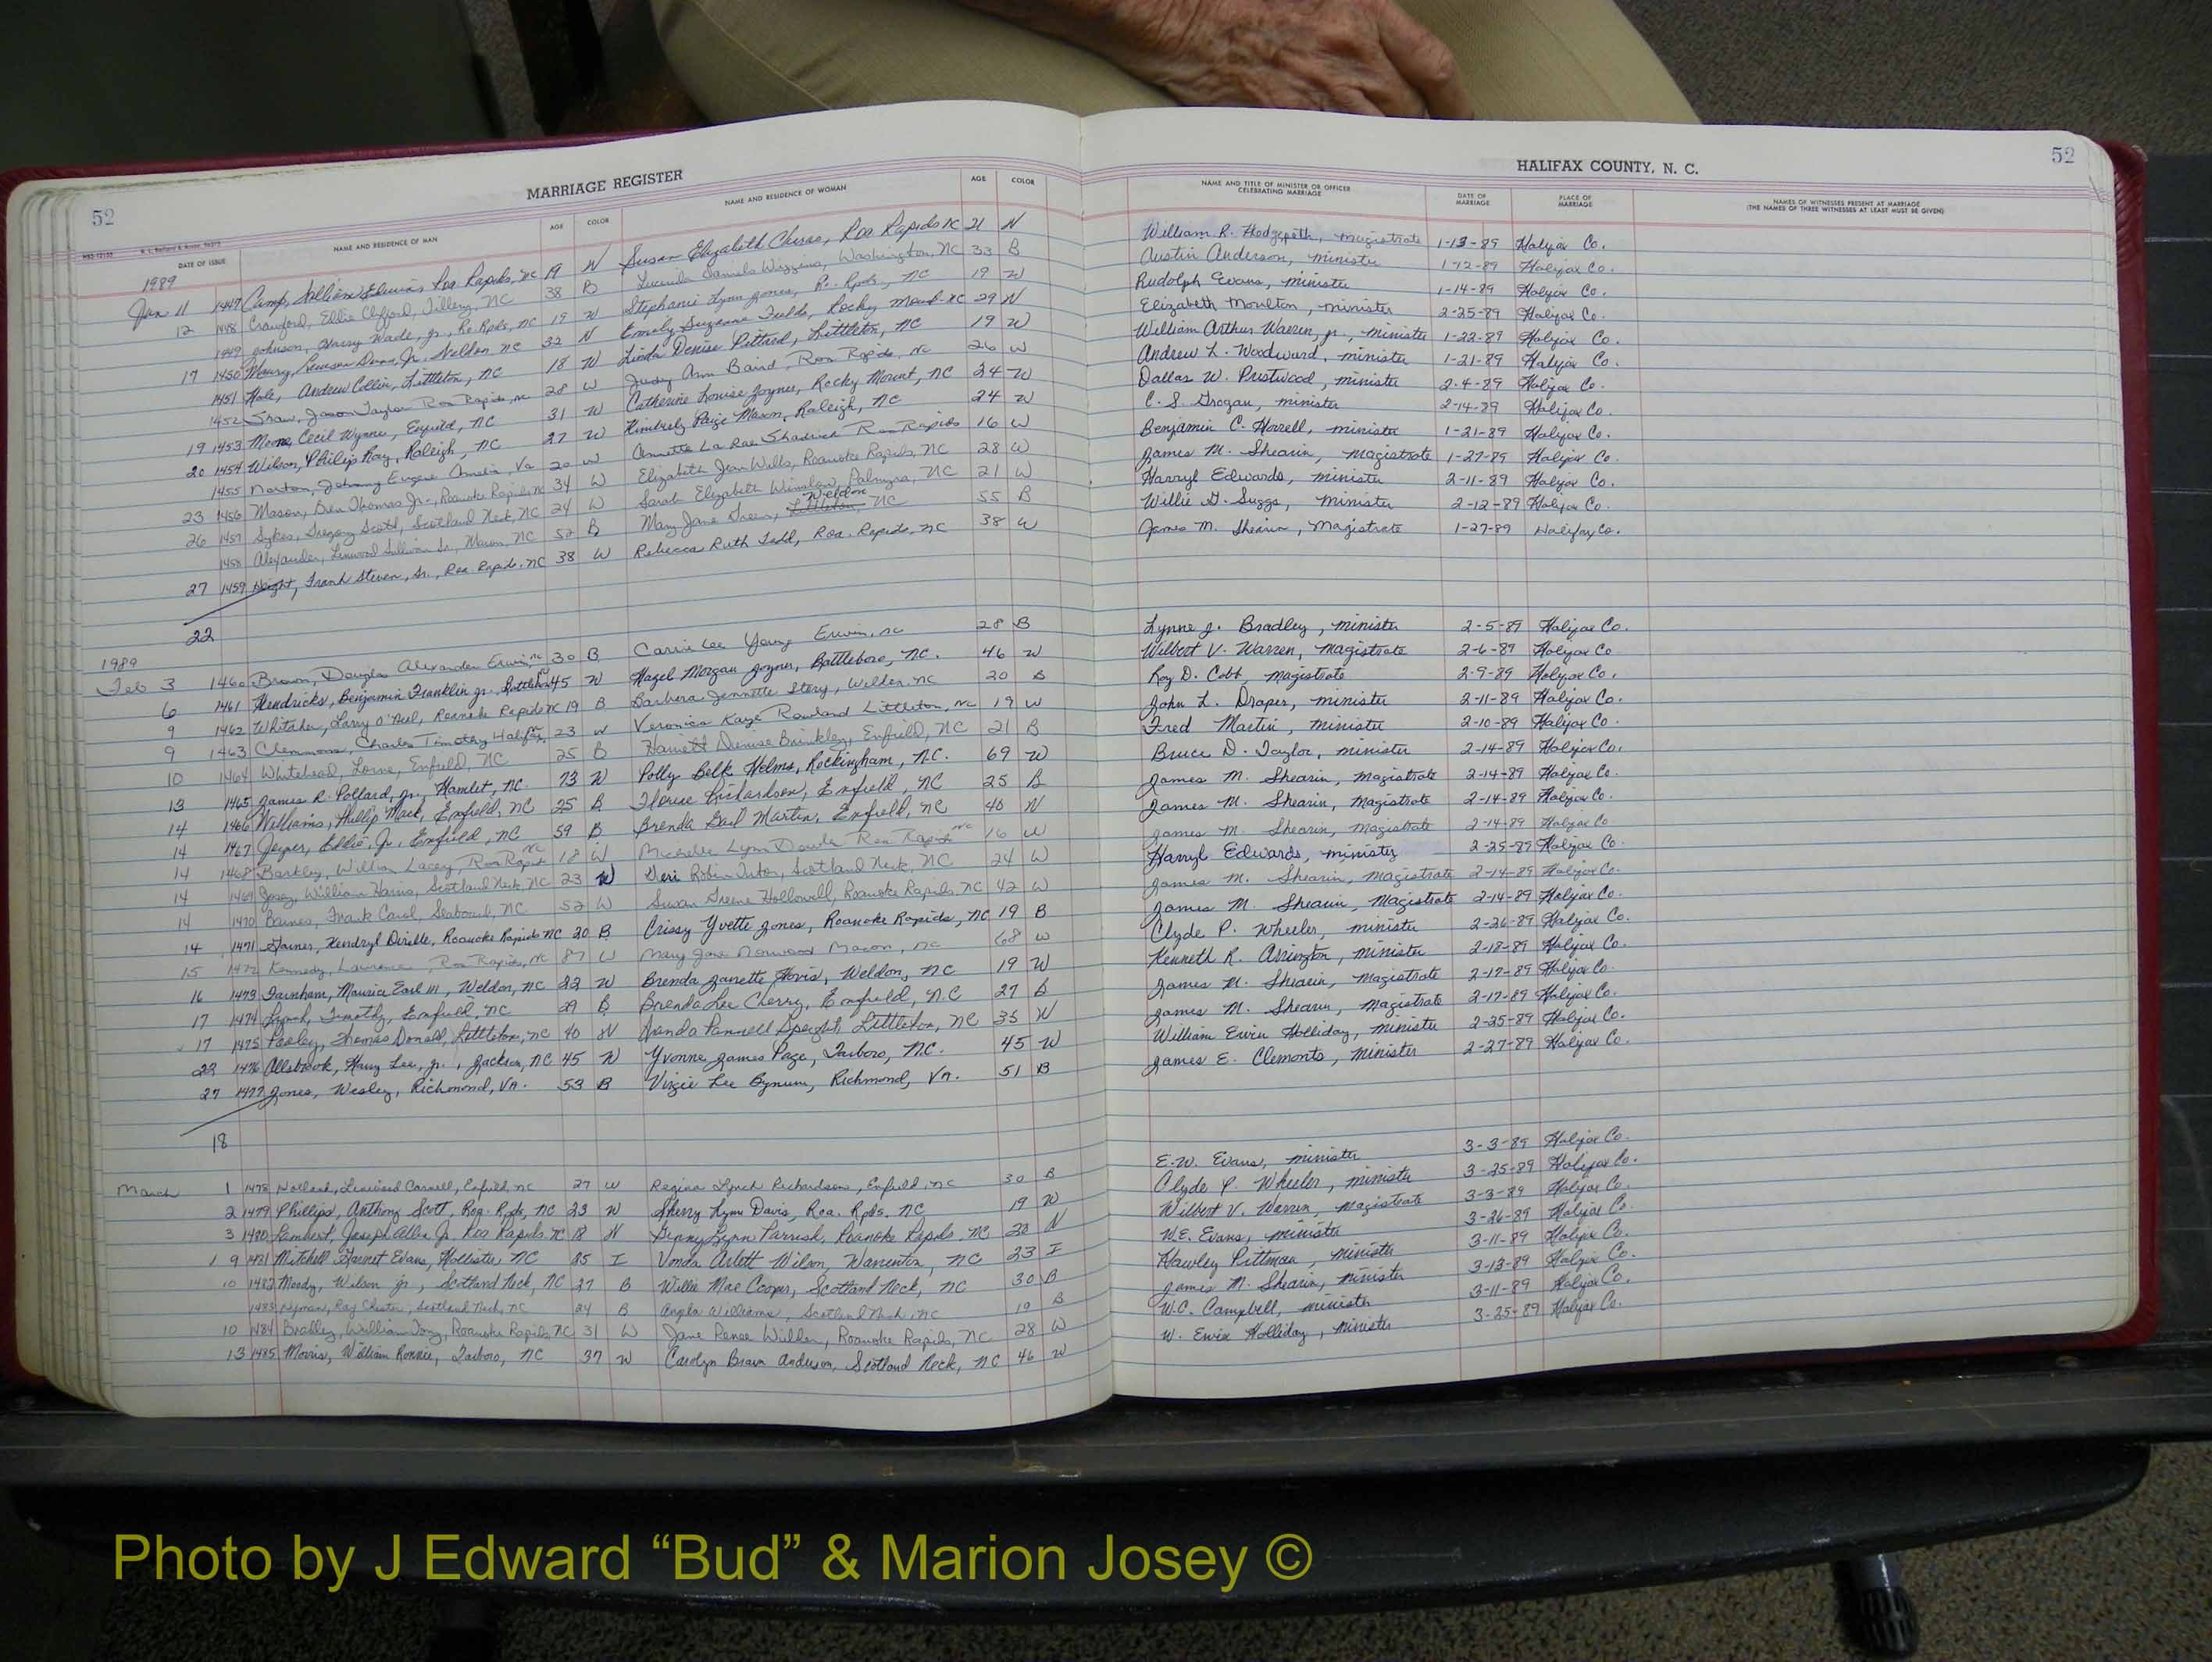 52
MARRIAGE REGISTER
HALIFAX COUNTY, N. C.
52
DATE OF ISSUE NAME AND RESIDENCE OF MAN AGE COLOR NAME AND RESIDENCE OF WOMAN AGE COLOR NAME AND TITLE OF MINISTER OR OFFICER CELEBRATING MARRIAGE DATE OF MARRIAGE PLACE OF MARRIAGE NAMES OF WITNESSES PRESENT AT MARRIAGE (THE NAMES OF THREE WITNESSES AT LEAST MUST BE GIVEN)
1989
Jan 11 1447 Camp, William Edwin Roa Rapids, NC 19 W Susan Elizabeth Roa Rapids NC 21 W William R. Hedgepeth, magistrate 1-13-89 Halifax Co.
12 1448 Crawford, Eddie Clifford, Tillery, NC 38 B Lucinda Daniels Wiggins, Washington, NC 33 B Austin Anderson, minister 1-12-89 Halifax Co.
1449 Johnson, Harry Wade, Jr., Ro. Rpds, NC 19 W Stephanie Lynn Jones, R. Rpds., NC 19 W Rudolph Evans, minister 1-14-89 Halifax Co.
17 1450 Dunn, Jr. Weldon NC 32 W Emily Suzanne Fields, Rocky Mount NC 29 W Elizabeth Moulton, minister 2-25-89 Halifax Co.
1451 Hale, Andrew Collin, Littleton, NC 18 W Linda Denise Pittard, Littleton, NC 19 W William Arthur Warren, Jr., minister 1-22-89 Halifax Co.
1452 Shaw, Jason Taylor Roa Rapids, NC 28 W Judy Ann Baird, Roa Rapids, NC 26 W Andrew L. Woodward, minister 1-21-89 Halifax Co.
19 1453 Moore, Cecil Wynne, Enfield, NC 31 W Catherine Louise Joyner, Rocky Mount, NC 24 W Dallas W. Prestwood, minister 2-4-89 Halifax Co.
20 1454 Wilson, Philip Ray, Raleigh, NC 27 W Kimberly Paige Mason, Raleigh, NC 24 W C. S. Grogan, minister 2-14-89 Halifax Co.
1455 Norton, Johnny Eugene Amelia Va 20 W Annette La Rae Shadrick Roa Rapids 16 W Benjamin C. Horrell, minister 1-21-89 Halifax Co.
23 1456 Mason, Ben Thomas Jr., Roanoke Rapids, NC 34 W Elizabeth Jean Wells, Roanoke Rapids, NC 28 W James M. Shearin, Magistrate 1-27-89 Halifax Co.
26 1457 Sykes, Gregory Scott, Scotland Neck, NC 24 W Sarah Elizabeth Winslow, Palmyra, NC 21 W Harryl Edwards, minister 2-11-89 Halifax Co.
1458 Alexander, Linwood Sr., Macon, NC 52 B Mary Jane Green, Littleton Weldon NC 55 B Willie G. Suggs, minister 2-12-89 Halifax Co.
27 1459 Hight, Frank Steven, Sr., Roa. Rapids, NC 38 W Rebecca Ruth Todd, Roa. Rapids, NC 38 W James M. Shearin, Magistrate 1-27-89 Halifax Co.
22
1989
Feb 3 1460 Brown, Douglas Alexander Erwin, NC 30 B Carrie Lee Young Erwin, NC 28 B Lynne J. Bradley, minister 2-5-89 Halifax Co.
6 1461 Hendricks, Benjamin Franklin Jr. Battleboro 45 W Hazel Morgan Joyner, Battleboro, N.C. 46 W Wilbert V. Warren, magistrate 2-6-89 Halifax Co
9 1462 Whitaker, Larry O'Neal, Roanoke Rapids NC 19 B Barbara Jennette Story, Weldon NC 20 B Roy D. Cobb, magistrate 2-9-89 Halifax Co.
9 1463 Clemmons, Charles Timothy Halifax 23 W Veronica Kaye Rowland Littleton, NC 19 W John L. Draper, minister 2-11-89 Halifax Co.
10 1464 Whitehead, Lorne, Enfield, NC 25 B Harriett Denise Brinkley, Enfield, NC 21 B Fred Martin, minister 2-10-89 Halifax Co.
13 1465 James R. Pollard, Jr., Hamlet, NC. 73 W Polly Belk Helms, Rockingham, N.C. 69 W Bruce D. Taylor, minister 2-14-89 Halifax Co.
14 1466 Williams, Phillip Mack, Enfield, NC 25 B Florine Richardson, Enfield, NC 25 B James M. Shearin, Magistrate 2-14-89 Halifax Co.
14 1467 Joyner, Eddie, Jr., Enfield, NC 59 B Brenda Gail Martin, Enfield, NC 40 W James M. Shearin, Magistrate 2-14-89 Halifax Co.
14 1468 Barkley, William Lacey, Roa Rapids NC 18 W Michelle Lynn Roa Rapids NC 16 W James M. Shearin, Magistrate 2-14-89 Halifax Co
14 1469 Josey, William Harris, Scotland Neck, NC 23 W Robin Scotland Neck, NC 24 W Harryl Edwards, minister 2-25-89 Halifax Co.
14 1470 Barnes, Frank Carol, Seaboard, NC 52 W Susan Greene Hollowell, Roanoke Rapids, NC 42 W James M. Shearin, Magistrate 2-14-89 Halifax Co.
14 1471 Garner, Kendryl Roanoke Rapids NC 20 B Crissy Yvette Jones, Roanoke Rapids, NC 19 B James M. Shearin, Magistrate 2-14-89 Halifax Co.
15 1472 Kennedy, Lawrence, Roa Rapids, NC 87 W Mary Jane Norwood Macon, NC 68 W Clyde P. Wheeler, minister 2-26-89 Halifax Co.
16 1473 Farnham, Maurice Earl III, Weldon, NC 22 W Brenda Janette Hovis, Weldon, NC 19 W Kenneth R. Arrington, minister 2-18-89 Halifax Co.
17 1474 Lynch, Timothy, Enfield, NC 29 B Brenda Lee Cherry, Enfield, N.C 27 B James M. Shearin, Magistrate 2-17-89 Halifax Co.
17 1475 Pasley, Thomas Donald, Littleton, NC 40 W Wanda Pannell Speight Littleton, NC 35 W James M. Shearin, Magistrate 2-17-89 Halifax Co.
22 1476 Allsbrook, Harry Lee, Jr., Jackson, NC 45 W Yvonne James Page, Tarboro, N.C. 45 W William Ewin Holliday, minister 2-25-89 Halifax Co.
27 1477 Jones, Wesley, Richmond, VA. 53 B Virgie Lee Bynum, Richmond, VA. 51 B James E. Clements, minister 2-27-89 Halifax Co.
18
March 1 1478 Holland, Linwood Carnell, Enfield NC 27 W Regina Lynch Richardson, Enfield, NC 30 B E.W. Evans, minister 3-3-89 Halifax Co.
2 1479 Phillips, Anthony Scott, Roa. Rpds, NC 23 W Sherry Lynn Davis, Roa. Rpds. NC 19 W Clyde P. Wheeler, minister 3-25-89 Halifax Co.
3 1480 Lambert, Joseph Allen Jr. Roa Rapids, NC 18 W Ginny Lynn Parrish, Roanoke Rapids, NC 20 W Wilbert V. Warren, magistrate 3-3-89 Halifax Co.
9 1481 Mitchell Garnet Evans, Hollister, NC 25 I Vonda Arlett Wilson, Warrenton, NC 23 I W.E. Evans, minister 3-26-89 Halifax Co.
10 1482 Moody, Wilson Jr., Scotland Neck, NC 27 B Willie Mae Cooper, Scotland Neck, NC 30 B Hawley Pittman, minister 3-11-89 Halifax Co.
1483 Hyman, Ray Chester, Scotland Neck, NC 24 B Angela Williams, Scotland Neck, NC 19 B James M. Shearin, minister 3-13-89 Halifax Co.
10 1484 Bradley, William Tony, Roanoke Rapids NC 31 W Jane Renee Roanoke Rapids, NC 28 W W.C. Campbell, minister 3-11-89 Halifax Co.
13 1485 Morris, William Ronnie, Tarboro, NC 37 W Carolyn Braun Anderson, Scotland Neck, NC 46 W W. Ewin Holliday, minister 3-25-89 Halifax Co.
Photo by J Edward “Bud” & Marion Josey ©